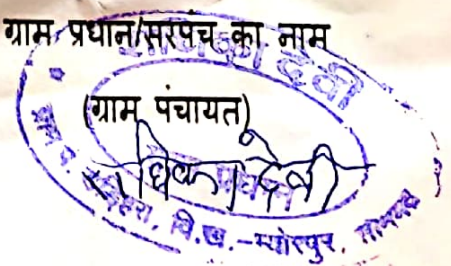 ग्राम प्रधान/सरपंच का नाम
देवी
(ग्राम पंचायत)
राधिका देवी
वि.ख.-म्योरपुर,